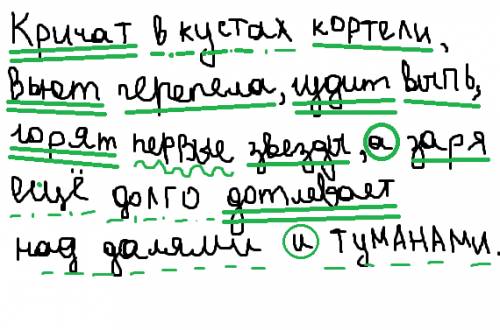 Кричат в кустах кортели,
вьют перепела, гудит выпь,
горят первые звезды, а заря
ещё долго дотлевает
над далями и туманами.